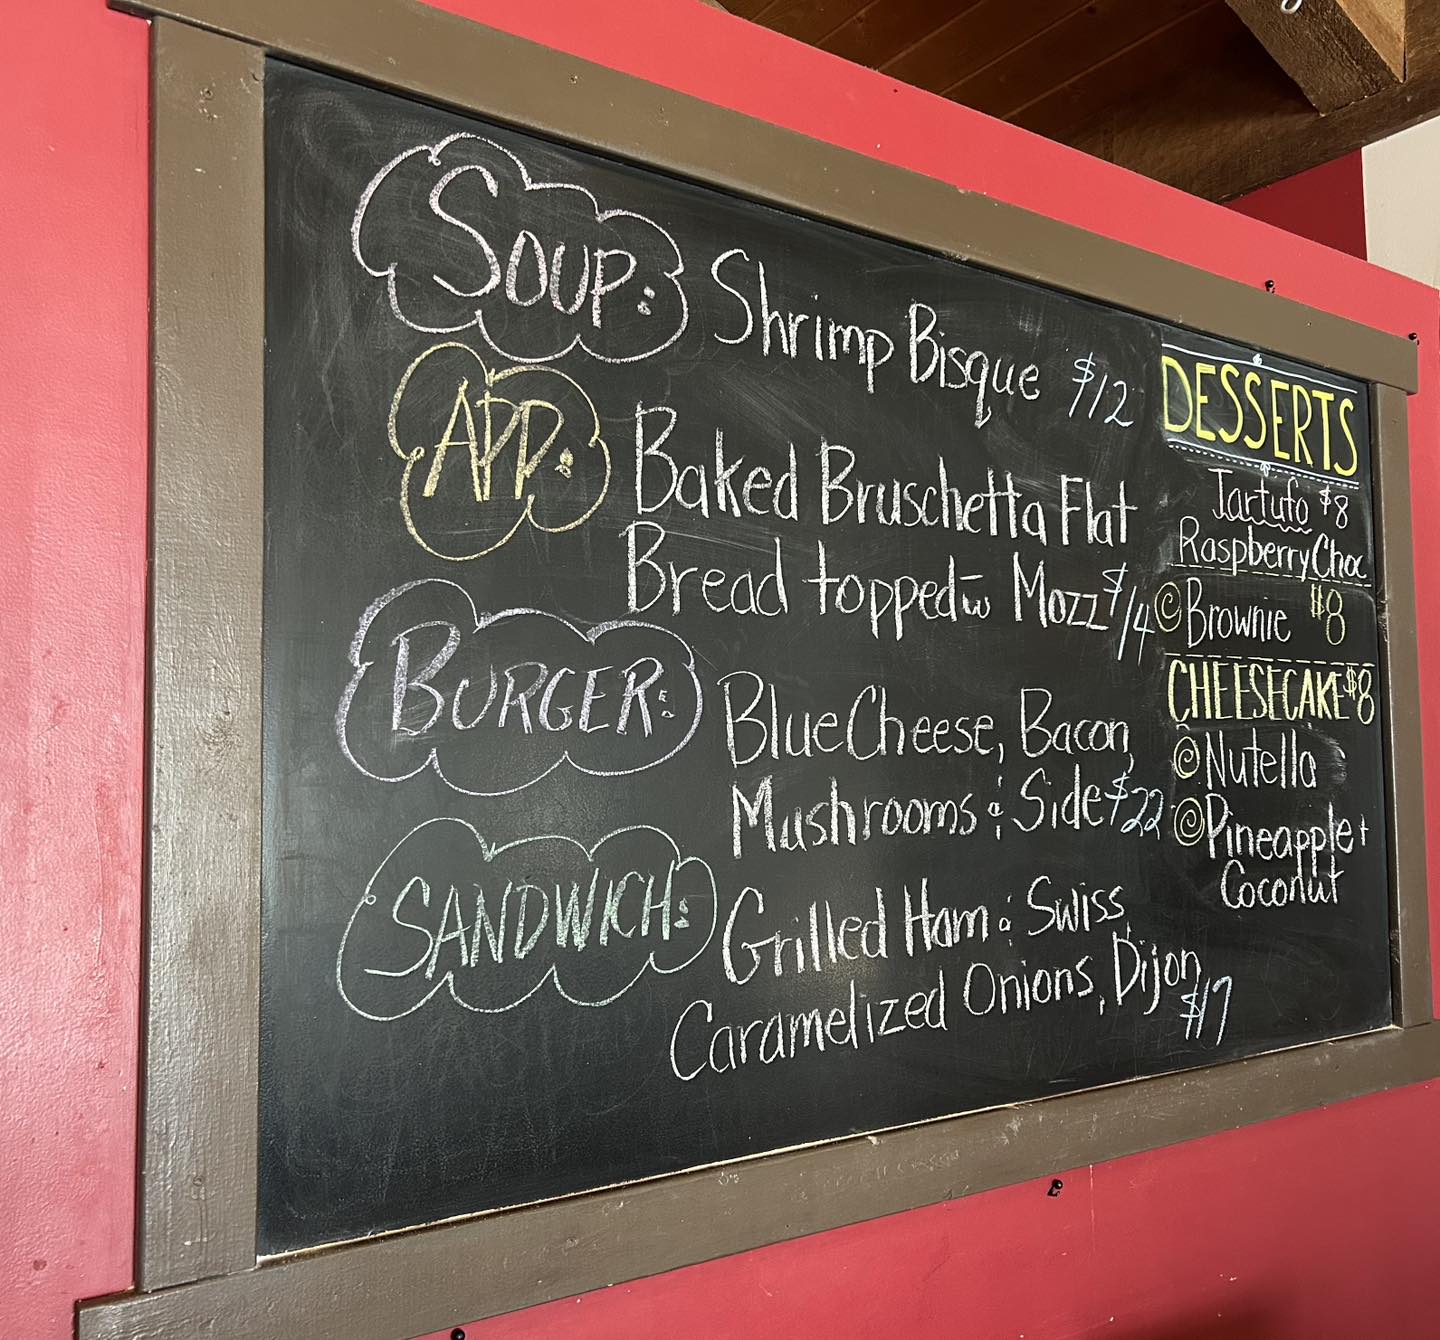 SOUP: Shrimp Bisque $12
APP: Baked Bruschetta Flat
Bread topped w̄ Mozz $14
BURGER: Blue Cheese, Bacon,
Mushrooms & Side $22
SANDWICH: Grilled Ham & Swiss,
Caramelized Onions, Dijon
$17
DESSERTS
Tartufo $8
Raspberry Choc
Brownie $8
CHEESECAKE $8
Nutella
Pineapple +
Coconut